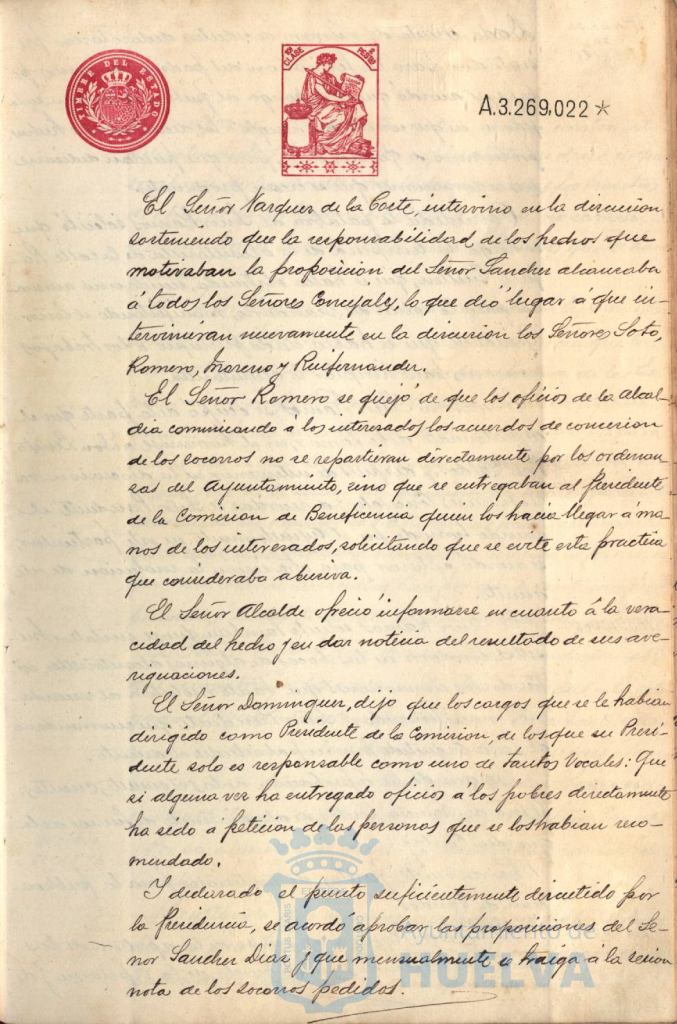 TIMBRE DEL ESTADO
CLASE
PESETAS
A.3.269,022*
El Señor Vazquez de la Corte, intervino en la discusion
sosteniendo que la responsabilidad de los hechos que
motivaban la proposicion del Señor Sanchez alcanzaba
á todos los Señores Concejales, lo que dió lugar á que in-
tervinieran nuevamente en la discusion los Señores Soto,
Romero, Moreno y Ruifernandez.
El Señor Romero se quejó de que los oficios de la alcal-
dia comunicando á los interesados los acuerdos de concesion
de los socorros no se repartieran directamente por los ordenan-
zas del Ayuntamiento, sino que se entregaban al Presidente
de la Comision de Beneficencia quien los hacia llegar á ma-
nos de los interesados, solicitando que se evite esta practica
que consideraba abusiva.
El Señor Alcalde ofreció informarse en cuanto á la vera-
cidad del hecho y en dar noticia del resultado de sus ave-
riguaciones.
El Señor Dominguez, dijo que los cargos que se le habian
dirigido como Presidente de la Comision, de los que su Presi-
dente solo es responsable como uno de tantos Vocales: Que
si alguna vez ha entregado oficios á los pobres directamente
ha sido á peticion de las personas que se los habian reco-
mendado.
Y declarado el punto suficientemente discutido por
la Presidencia, se acordo aprobar las proposiciones del Se-
ñor Sanchez Diaz y que mensualmente se traiga á la sesion
nota de los socorros pedidos.
Ayuntamiento de
HUELVA